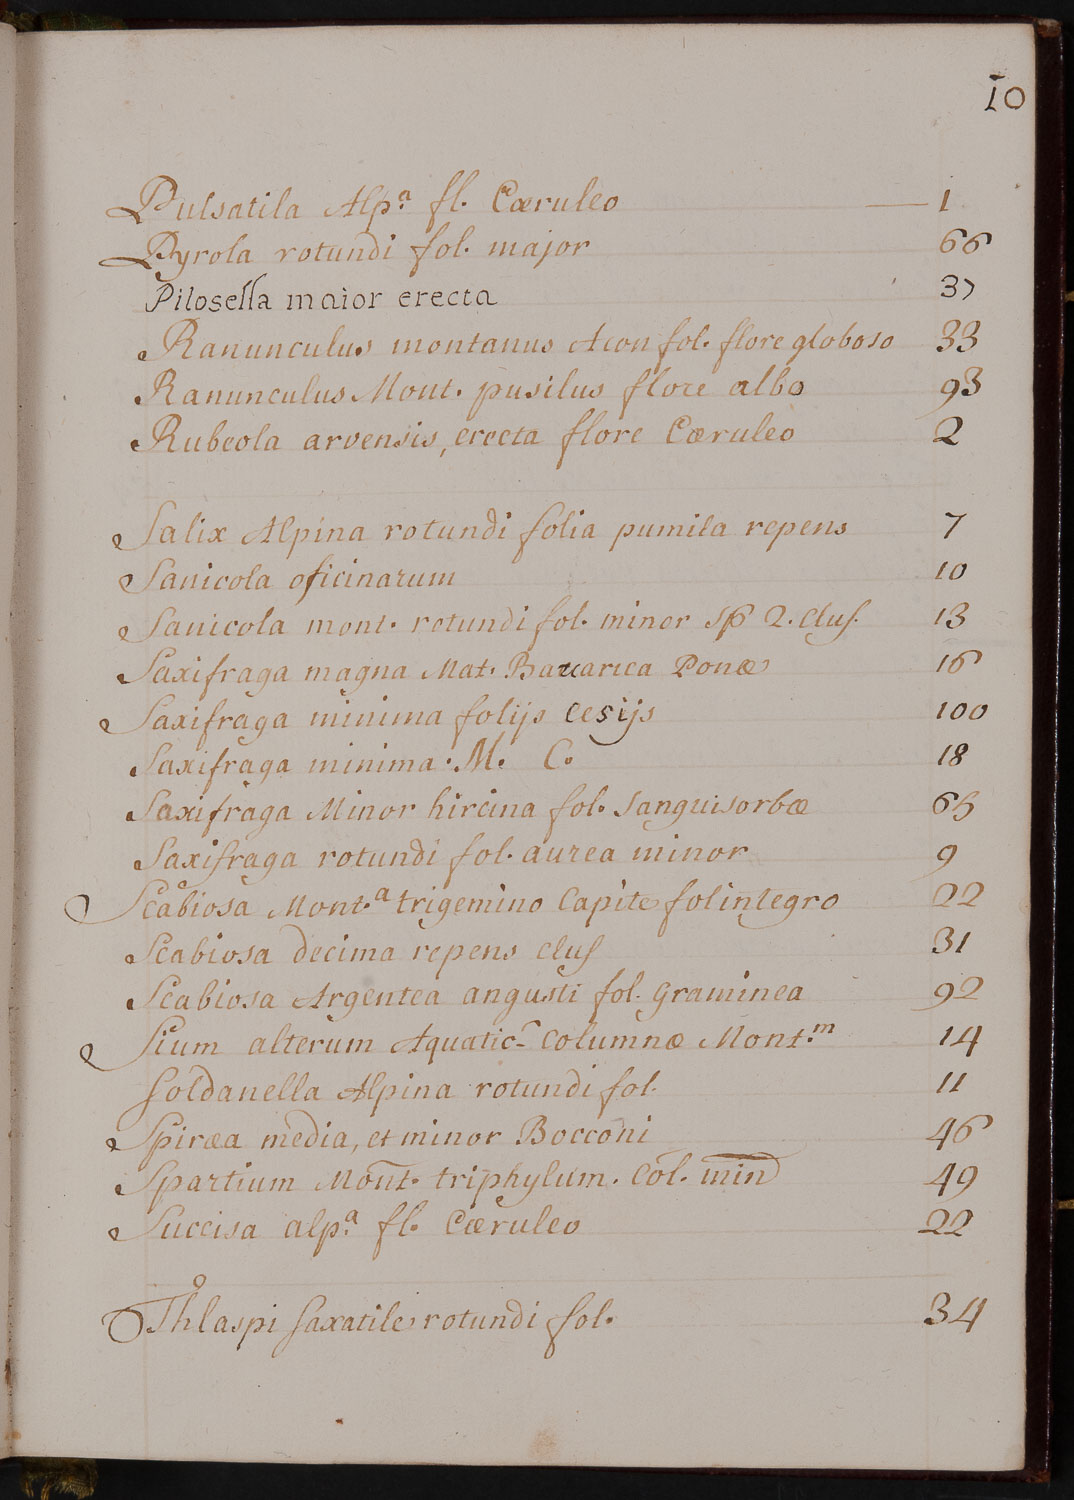 10
Pulsatila Alpᵃ. fl. Cæruleo — 1
Pyrola rotundi fol. major 66
Pilosella maior erecta 37
Ranunculus montanus Acon fol. flore globoso 33
Ranunculus Mont. pusilus flore albo 93
Rubeola arvensis, erecta flore Cæruleo 2
Salix Alpina rotundi folia pumila repens 7
Sanicola oficinarum 10
Sanicola mont. rotundi fol. minor sp 2. Clus. 13
Saxifraga magna Mat. Bavarica Ponæ 16
Saxifraga minima folijs cesijs 100
Saxifraga minima. M. C. 18
Saxifraga Minor hircina fol. Sanguisorbæ 65
Saxifraga rotundi fol. aurea minor 9
Scabiosa Mont.ᵃ trigemino Capite fol integro 22
Scabiosa decima repens clus 31
Scabiosa Argentea angusti fol. Graminea 92
Sium alterum Aquatic- Columnæ Mont.ᵐ 14
Soldanella Alpina rotundi fol. 11
Spiræa media, et minor Bocconi 46
Spartium Mont. triphylum. Col. min 49
Succisa alpᵃ. fl. Cæruleo 22
Thlaspi saxatile rotundi fol. 34